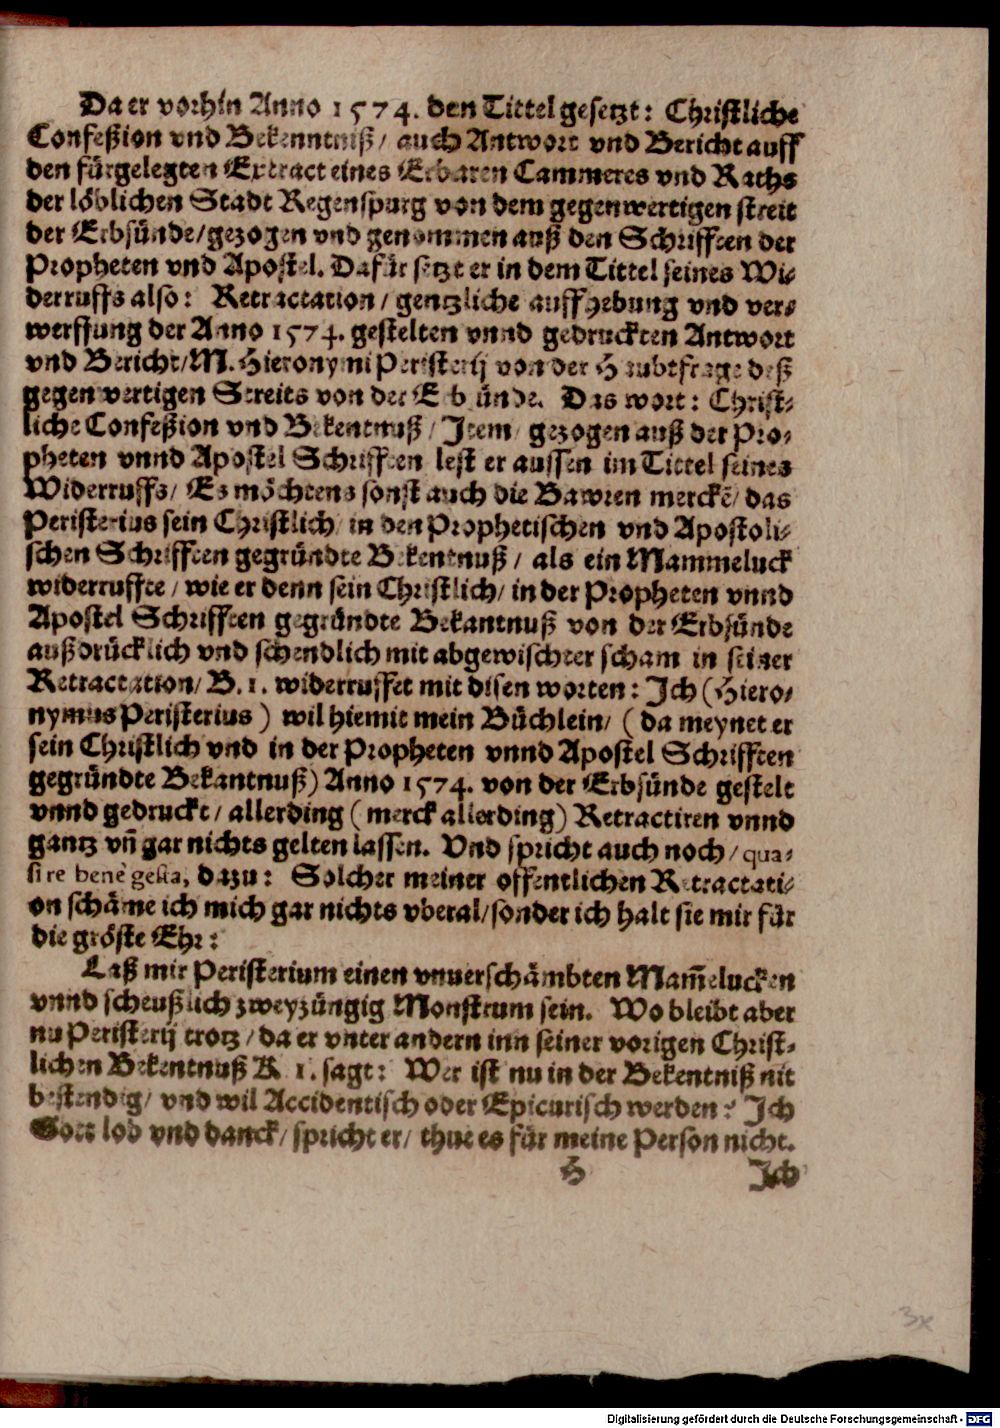 Da er vorhin Anno 1574. den Tittel gesetzt: Christliche
Confeßion vnd Bekenntniß / auch Antwort vnd Bericht auff
den fürgelegten Extract eines Erbaren Cammeres vnd Raths
der löblichen Stadt Regenspurg von dem gegenwertigen streit
der Erbsünde/gezogen vnd genommen auß den Schrifften der
Propheten vnd Apostel. Dafür setzt er in dem Tittel seines Wi-
derruffs also: Retractation / gentzliche auffhebung vnd ver-
werffung der Anno 1574. gestelten vnnd gedruckten Antwort
vnd Bericht/M. Hieronymi Peristerij von der Haubtfrage deß
gegenwertigen Streits von der Erbsünde. Das wort: Christ-
liche Confeßion vnd Bekentnuß / Item/ gezogen auß der Pro-
pheten vnnd Apostel Schrifften lest er aussen im Tittel seines
Widerruffs/ Es möchtens sonst auch die Bawren merckẽ/ das
Peristerius sein Christlich/ in den Prophetischen vnd Apostoli-
schen Schrifften gegründte Bekentnuß / als ein Mammeluck
widerruffte / wie er denn sein Christlich/ in der Propheten vnnd
Apostel Schrifften gegründte Bekantnuß von der Erbsünde
außdrücklich vnd schendlich mit abgewischter scham in seiner
Retractation/ B. 1. widerruffet mit disen worten: Ich (Hiero-
nymus Peristerius) wil hiemit mein Büchlein/ (da meynet er
sein Christlich vnd in der Propheten vnnd Apostel Schrifften
gegründte Bekantnuß) Anno 1574. von der Erbsünde gestelt
vnnd gedruckt / allerding (merck allerding) Retractiren vnnd
gantz vñ gar nichts gelten lassen. Vnd spricht auch noch / qua-
si re bene gesta, dazu: Solcher meiner offentlichen Retractati-
on schäme ich mich gar nichts vberal/sonder ich halt sie mir für
die gröste Ehr:
Laß mir Peristerium einen vnuerschämbten Mam̃elucken
vnnd scheußlich zweyzüngig Monstrum sein. Wo bleibt aber
nu Peristerij trotz / da er vnter andern inn seiner vorigen Christ-
lichen Bekentnuß K 1. sagt: Wer ist nu in der Bekentniß nit
bestendig/ vnd wil Accidentisch oder Epicurisch werden? Ich
Gott lob vnd danck/ spricht er/ thue es für meine Person nicht.
H Ich
3x
Digitalisierung gefördert durch die Deutsche Forschungsgemeinschaft - DFG